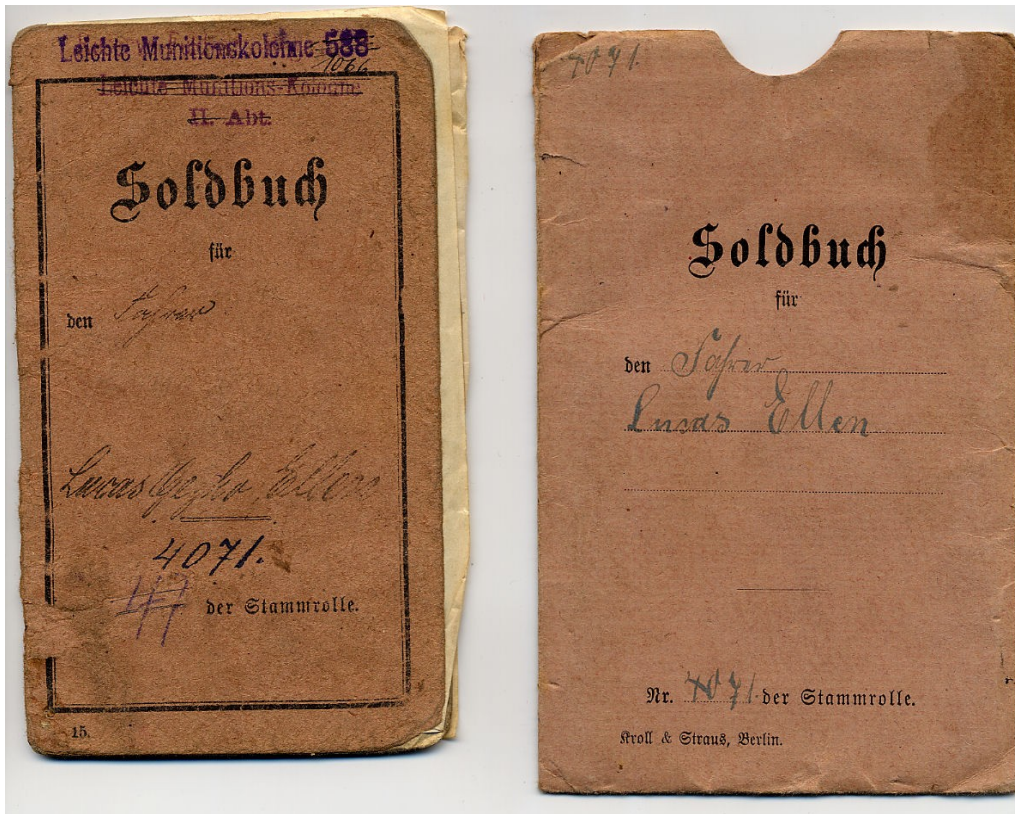 Leichte Munitionskolonne 588
1066
Leichte Munitions-Kolonne
II. Abt.
Soldbuch
für
den Fahrer
Lucas Ellens
4071.
47 der Stammrolle.
15.
4071.
Soldbuch
für
den Fahrer
Lucas Ellen
Nr. 4071 der Stammrolle.
Kroll & Straus, Berlin.